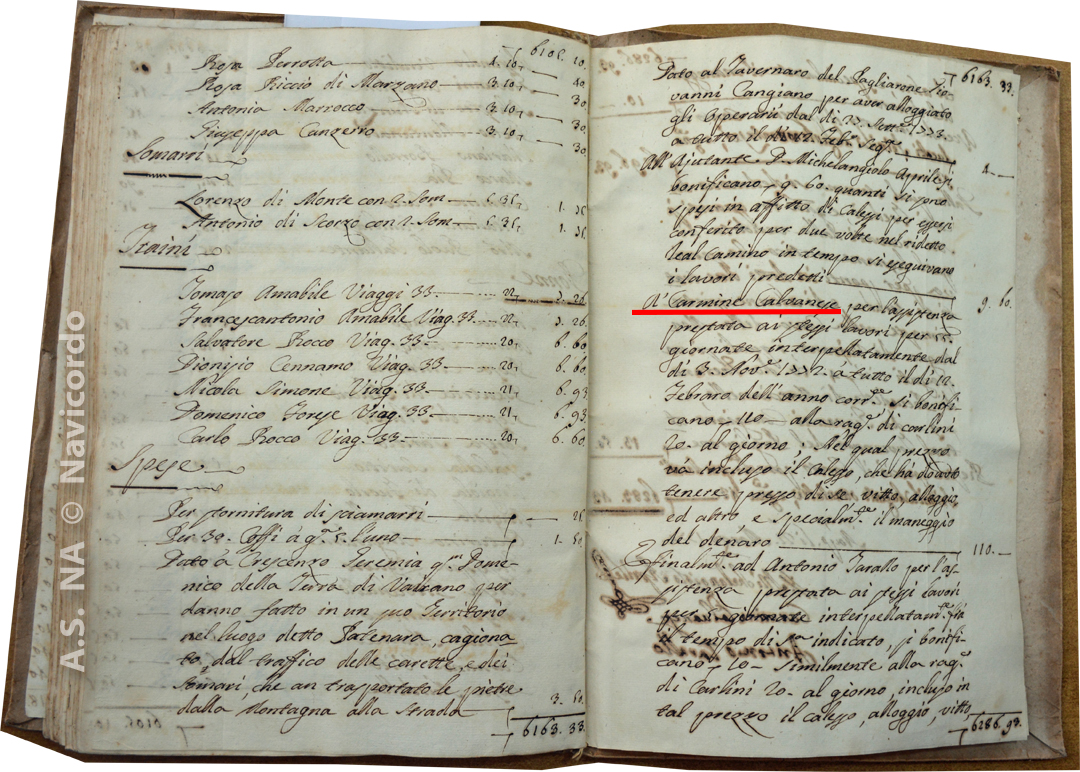 6101. 10.
Rosa Perrotta 10 10.
Rosa Riccio di Marzano 3.10 40
Antonia Marrocco 3.10 30
Giuseppa Canzerro 3.10 30.
Somarri
Lorenzo di Monte con 2. Som. 1. 3
Antonio di Scorzo con 2. Som. 1. 3
Traini
Tomaso Amabile Viaggi 33. 22 3. 26
Francescantonio Amabile Viag. 33. 22. 3. 26.
Salvatore Rocco Viag. 33. 20. 6. 60
Dionisio Cennamo Viag. 33. 20. 6. 60.
Nicola Simone Viag. 33. 21. 6. 93
Domenico Forese Viag. 33. 21. 6. 93.
Carlo Rocco Viag. 33. 20. 6. 60
Spese
Per fornitura di sciamarri 2
Per 30. Coffi á g.ⁿ 5. l'uno 1. 50.
Dato á Crescenzo Geremia q.ᵐ Dome-
nico della Terra di Vairano per
danno fatto in un suo Territorio
nel luogo detto Patenara, cagiona
to dal traffico delle carette, e dei
Somari, che an trasportato le pietre
dalla Montagna alla Strada 3. 50.
6163. 33.
6163. 33.
Dato al Tavernaro del Pagliarone Gio-
vanni Cangiano per aver alloggiato
gli Operarii dal di 22. Sett.ᵉ 1773.
a tutto il di 12. Feb. Seg.ᵉ
All'Ajutante D. Michelangiolo Aprile si
bonificano g. 60. quanti si sono
spesi in affitto di Calessi per essersi
conferito per due volte nel ridetto
Real Camino in tempo si eseguivano
i lavori predetti 9. 60.
A' Carmine Calvanese per l'assistenza
prestata ai stessi lavori per 55.
giornate interpellatamente dal
di 3. Nov.ᵉ 1772. á tutto il di 12.
Febraro dell'anno corr.ᵉ si bonifi-
cano 110 alla rag.ᵉ di carlini
20. al giorno. Nel qual prezzo
vá incluso il Calesso, che há dovuto
tenere presso di se, vitto, alloggio,
ed altro e specialm.ᵉ il maneggio
del denaro 110.
E finalm.ᵉ ad Antonio Tarallo per l'as-
sistenza prestata ai stessi lavori
per giornate interpellatam.ᵉ
il tempo di s.ᵃ indicato, si bonifi-
cano 10 similmente alla rag.ᵉ
di Carlini 20. al giorno, incluso in
tal prezzo il calesso, alloggio, vitto,
6286. 93.
A.S. NA © Navicordo